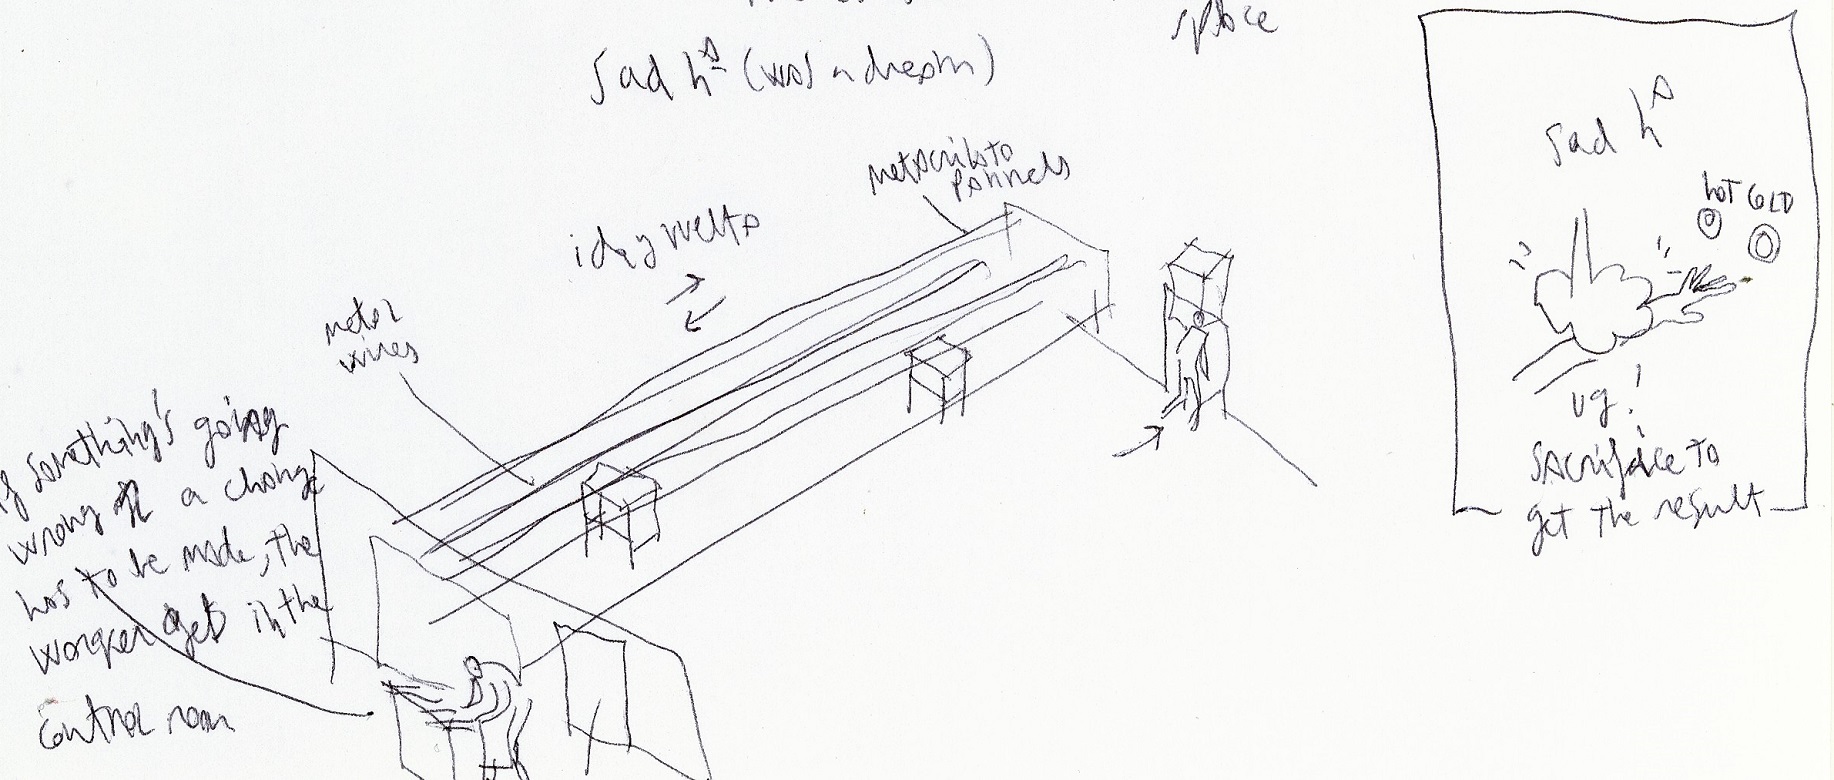 space
Sad h^A (was a dream)
metacrilato
pannels
metal
wires
if something's going
wrong or a change
has to be made, the
worker gets in the
control room
Sad h^A
HOT COLD
ug!
SACrifice to
get the result